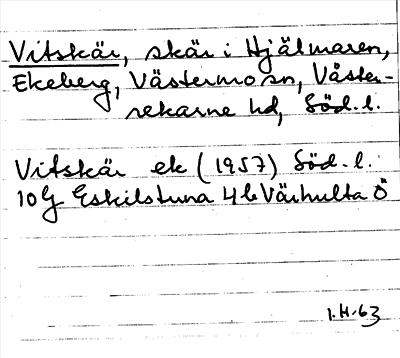 Vitskär, skär i Hjälmaren,
Ekeberg, Västermo sn, Väster-
rekarne hd, Söd. l.
Vitskär ek (1957) Söd. l.
10G Eskilstuna 4b Värhulta Ö
1.H.63